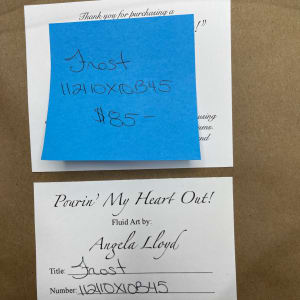 Thank you for purchasing a
!"
Frost
112110X10B45
$85-
using
and
Pourin' My Heart Out!
Fluid Art by:
Angela Lloyd
Title: Frost
Number: 112110X10B45